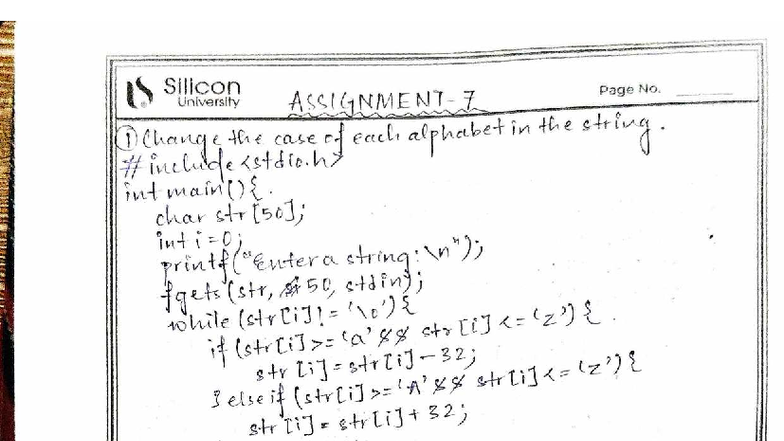 Silicon
University
ASSIGNMENT-7
Page No.
① Change the case of each alphabet in the string.
# include <stdio.h>
int main() {
char str[50];
int i=0;
printf("Enter a string:\n");
fgets(str, 50, stdin);
while (str[i] != '\0') {
if (str[i] >= 'a' && str[i] <= 'z') {
str[i] = str[i] - 32;
} else if (str[i] >= 'A' && str[i] <= 'z') {
str[i] = str[i] + 32;